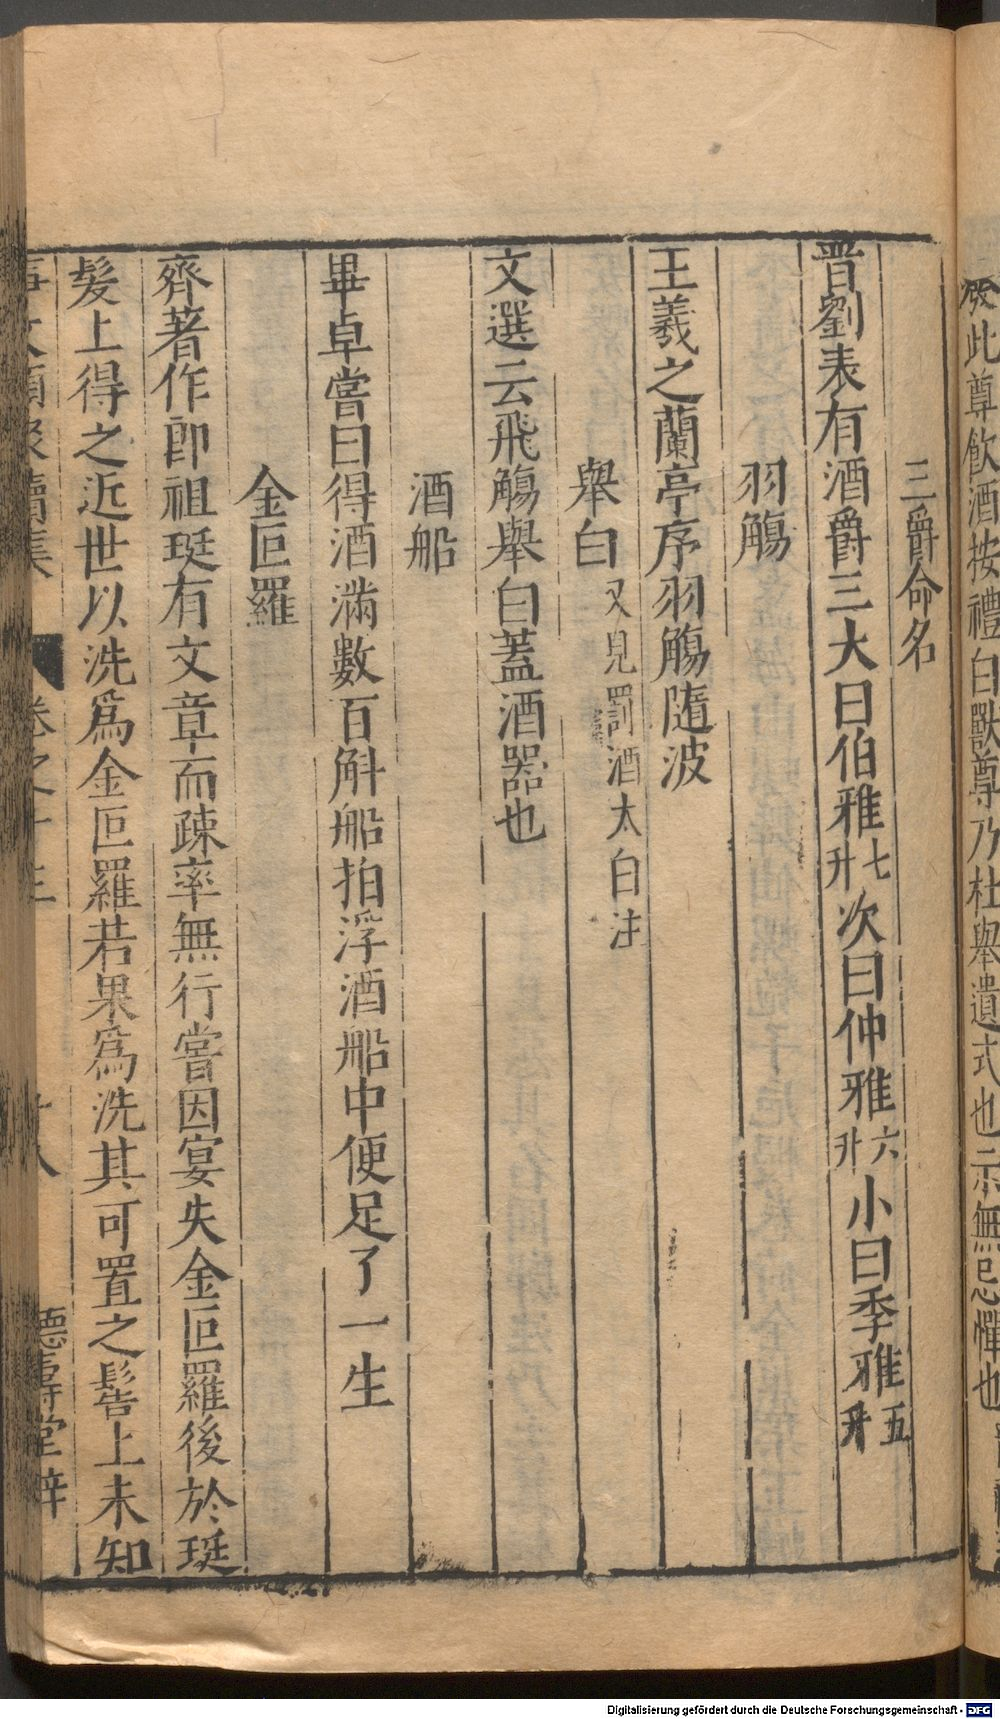 發此尊飲酒按禮白獸尊乃杜舉遺式也示無忌憚也
三爵命名
晋劉表有酒爵三大曰伯雅七升次曰仲雅六升小曰季雅五升
羽觴
王羲之蘭亭序羽觴隨波
舉白又見罰酒太白注
文選云飛觴舉白蓋酒器也
酒船
畢卓嘗曰得酒滿數百斛船拍浮酒船中便足了一生
金叵羅
齊著作郎祖珽有文章而疎率無行嘗因宴失金叵羅後於珽
髮上得之近世以洗爲金叵羅若果爲洗其可置之髻上未知
事文類聚續集 卷之十三 十八 德壽堂梓
Digitalisierung gefördert durch die Deutsche Forschungsgemeinschaft - DFG